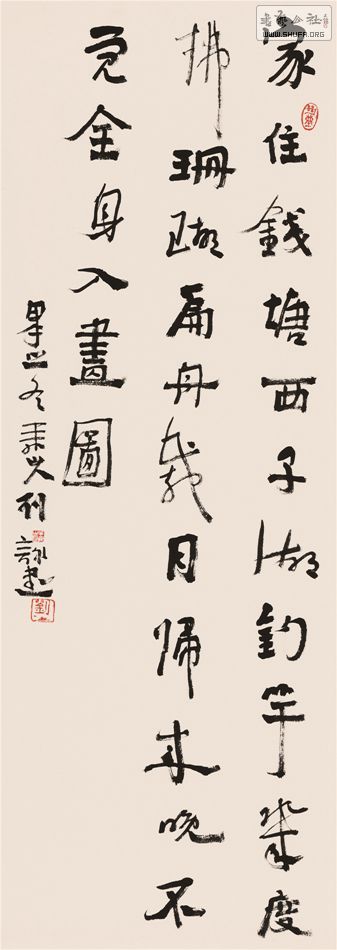 書藝公社
WWW.SHUFA.ORG
家住錢塘西子湖釣竿幾度
拂珊瑚扁舟載月歸來晚不
覺全身入畫圖
之冬